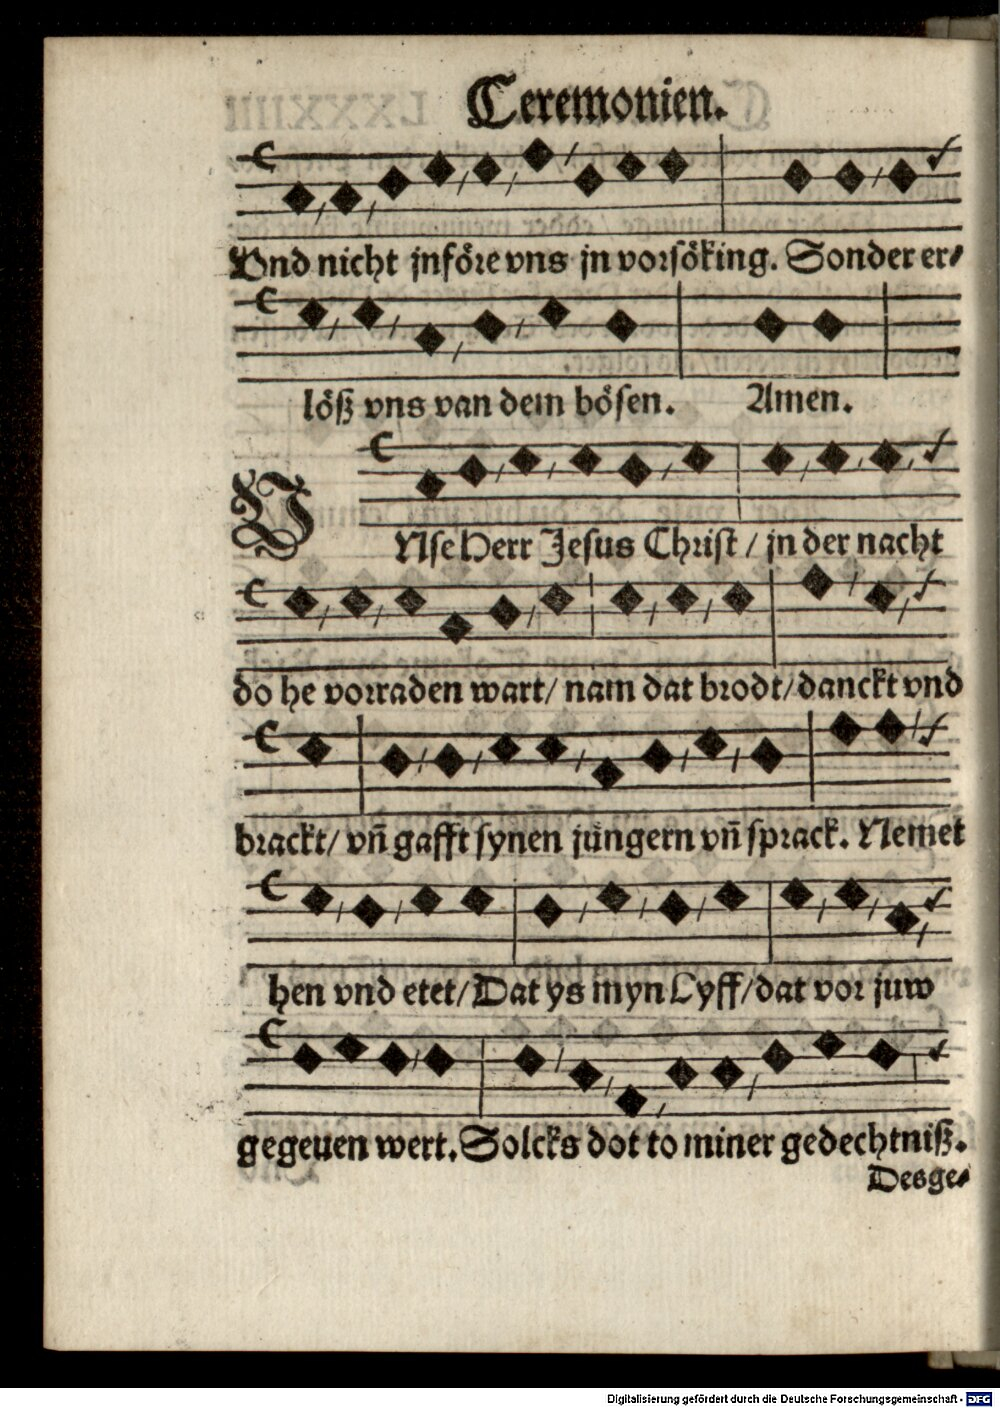 Ceremonien.
Vnd nicht jnföre vns jn vorsöking. Sonder er⸗
löß vns van dem bösen. Amen.
VNse Herr Jesus Christ / jn der nacht
do he vorraden wart/ nam dat brodt/ danckt vnd
brackt/ vñ gafft synen jüngern vñ sprack. Nemet
hen vnd etet/ Dat ys myn Lyff/ dat vor juw
gegeuen wert. Solcks dot to miner gedechtniß.
Desge⸗
Digitalisierung gefördert durch die Deutsche Forschungsgemeinschaft - DFG